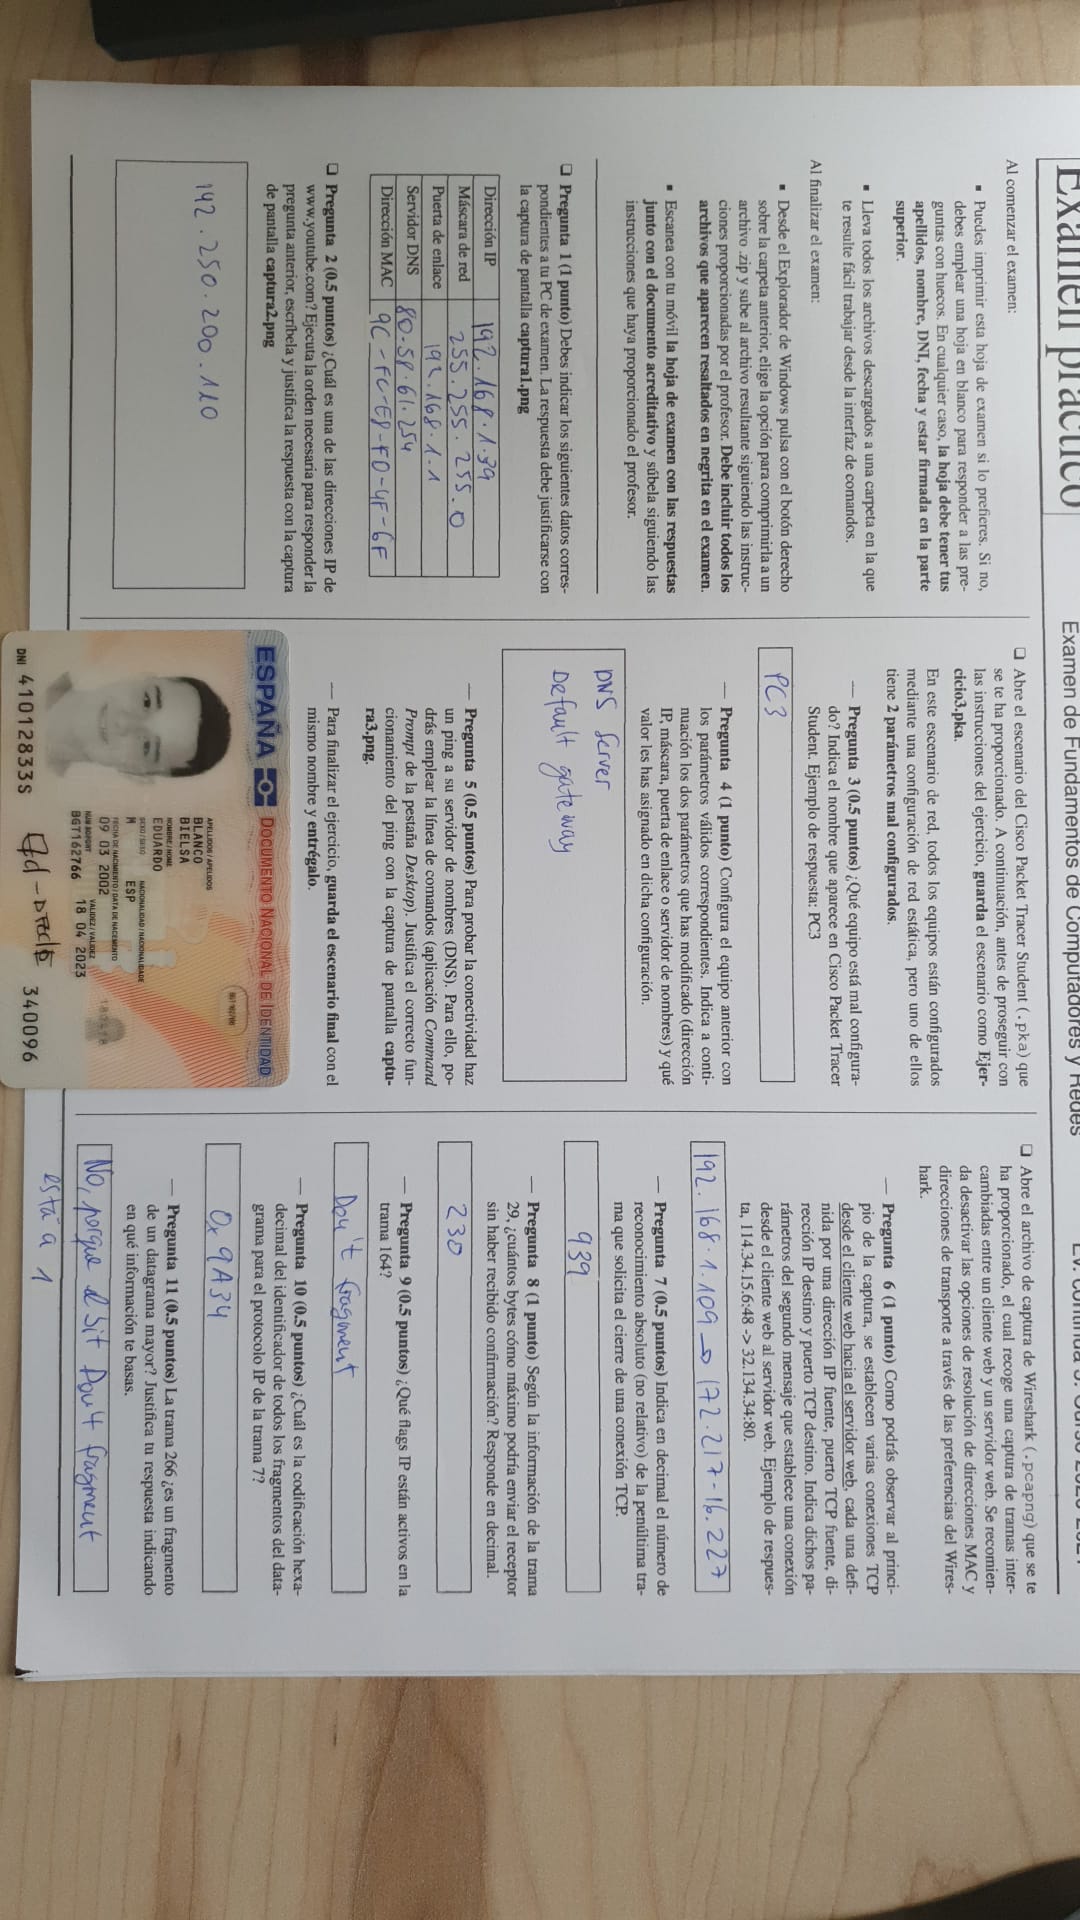 Examen práctico
Examen de Fundamentos de Computadores y Redes
Al comenzar el examen:
▪ Puedes imprimir esta hoja de examen si lo prefieres. Si no,
debes emplear una hoja en blanco para responder a las pre-
guntas con huecos. En cualquier caso, la hoja debe tener tus
apellidos, nombre, DNI, fecha y estar firmada en la parte
superior.
▪ Lleva todos los archivos descargados a una carpeta en la que
te resulte fácil trabajar desde la interfaz de comandos.
Al finalizar el examen:
▪ Desde el Explorador de Windows pulsa con el botón derecho
sobre la carpeta anterior, elige la opción para comprimirla a un
archivo .zip y sube al archivo resultante siguiendo las instruc-
ciones proporcionadas por el profesor. Debe incluir todos los
archivos que aparecen resaltados en negrita en el examen.
▪ Escanea con tu móvil la hoja de examen con las respuestas
junto con el documento acreditativo y súbela siguiendo las
instrucciones que haya proporcionado el profesor.
❑ Pregunta 1 (1 punto) Debes indicar los siguientes datos corres-
pondientes a tu PC de examen. La respuesta debe justificarse con
la captura de pantalla captura1.png
Dirección IP 192.168.1.39
Máscara de red 255.255.255.0
Puerta de enlace 192.168.1.1
Servidor DNS 80.58.61.254
Dirección MAC 9C-FC-E8-FD-4F-6F
❑ Pregunta 2 (0.5 puntos) ¿Cuál es una de las direcciones IP de
www.youtube.com? Ejecuta la orden necesaria para responder la
pregunta anterior, escríbela y justifica la respuesta con la captura
de pantalla captura2.png
142.250.200.110
❑ Abre el escenario del Cisco Packet Tracer Student (.pka) que
se te ha proporcionado. A continuación, antes de proseguir con
las instrucciones del ejercicio, guarda el escenario como Ejer-
cicio3.pka.
En este escenario de red, todos los equipos están configurados
mediante una configuración de red estática, pero uno de ellos
tiene 2 parámetros mal configurados.
— Pregunta 3 (0.5 puntos) ¿Qué equipo está mal configura-
do? Indica el nombre que aparece en Cisco Packet Tracer
Student. Ejemplo de respuesta: PC3
PC3
— Pregunta 4 (1 punto) Configura el equipo anterior con
los parámetros válidos correspondientes. Indica a conti-
nuación los dos parámetros que has modificado (dirección
IP, máscara, puerta de enlace o servidor de nombres) y qué
valor les has asignado en dicha configuración.
DNS Server
Default gateway
— Pregunta 5 (0.5 puntos) Para probar la conectividad haz
un ping a su servidor de nombres (DNS). Para ello, po-
drás emplear la línea de comandos (aplicación Command
Prompt de la pestaña Desktop). Justifica el correcto fun-
cionamiento del ping con la captura de pantalla captu-
ra3.png.
— Para finalizar el ejercicio, guarda el escenario final con el
mismo nombre y entrégalo.
ESPAÑA DOCUMENTO NACIONAL DE IDENTIDAD
APELLIDOS / APELIDOS
BLANCO
BIELSA
NOMBRE / NOME
EDUARDO
SEXO / SEXO NACIONALIDAD / NACIONALIDADE
M ESP
FECHA DE NACIMIENTO / DATA DE NACEMENTO
09 03 2002
NUM SOPORT VALIDEZ / VALIDEZ
BGT162766 18 04 2023
DNI 41012833S 340096
❑ Abre el archivo de captura de Wireshark (.pcapng) que se te
ha proporcionado, el cual recoge una captura de tramas inter-
cambiadas entre un cliente web y un servidor web. Se recomien-
da desactivar las opciones de resolución de direcciones MAC y
direcciones de transporte a través de las preferencias del Wires-
hark.
— Pregunta 6 (1 punto) Como podrás observar al princi-
pio de la captura, se establecen varias conexiones TCP
desde el cliente web hacia el servidor web, cada una defi-
nida por una dirección IP fuente, puerto TCP fuente, di-
rección IP destino y puerto TCP destino. Indica dichos pa-
rámetros del segundo mensaje que establece una conexión
desde el cliente web al servidor web. Ejemplo de respues-
ta, 114.34.15.6:48 -> 32.134.34:80.
192.168.1.109 → 172.217-16.227
— Pregunta 7 (0.5 puntos) Indica en decimal el número de
reconocimiento absoluto (no relativo) de la penúltima tra-
ma que solicita el cierre de una conexión TCP.
939
— Pregunta 8 (1 punto) Según la información de la trama
29, ¿cuántos bytes cómo máximo podría enviar el receptor
sin haber recibido confirmación? Responde en decimal.
230
— Pregunta 9 (0.5 puntos) ¿Qué flags IP están activos en la
trama 164?
Don't fragment
— Pregunta 10 (0.5 puntos) ¿Cuál es la codificación hexa-
decimal del identificador de todos los fragmentos del data-
grama para el protocolo IP de la trama 7?
0x 9A34
— Pregunta 11 (0.5 puntos) La trama 266 ¿es un fragmento
de un datagrama mayor? Justifica tu respuesta indicando
en qué información te basas.
No, porque el bit Don't fragment
está a 1